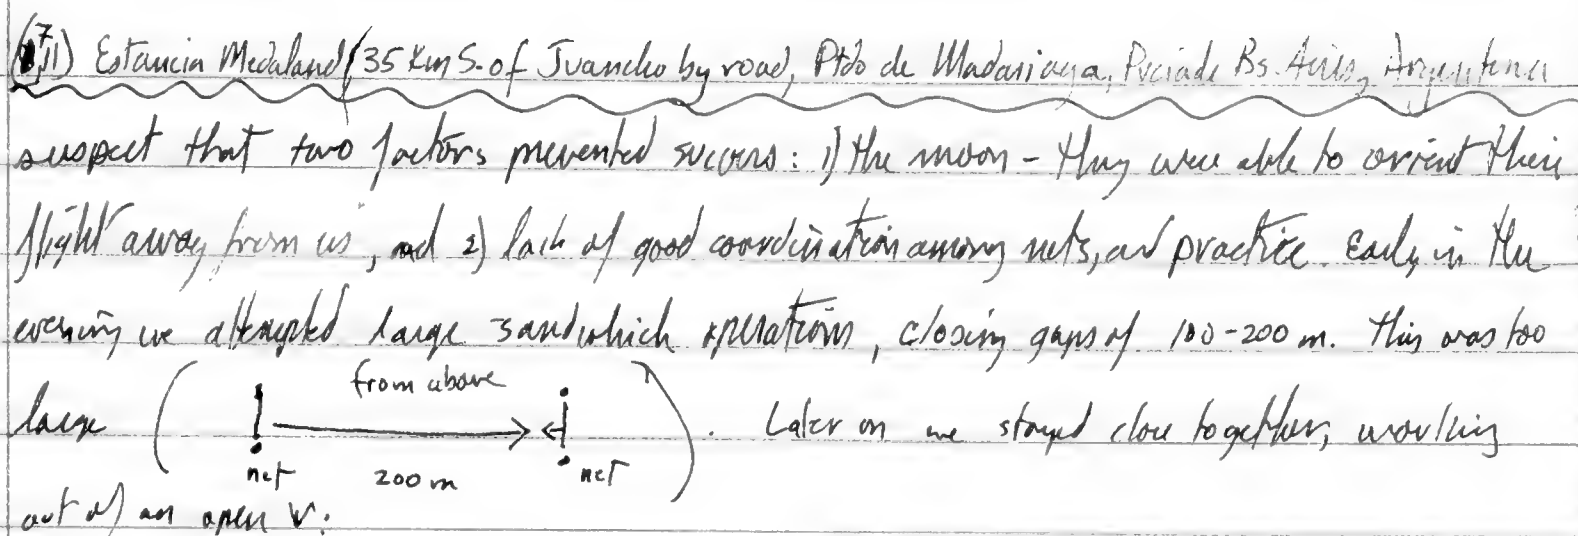 (7,11) Estancia Medaland (35 Km S. of Juancho by road, Ptdo de Madariaga, Pvciade Bs. Aires, Argentina
suspect that two factors prevented success: 1) the moon - they were able to orrient their
flight away from us, and 2) lack of good coordination among nets, and practice. Early in the
evening we attempted large sandwhich operations, closing gaps of 100-200 m. This was too
large ( from above ). Later on we stayed close together, working
net 200 m net
out of an open V.